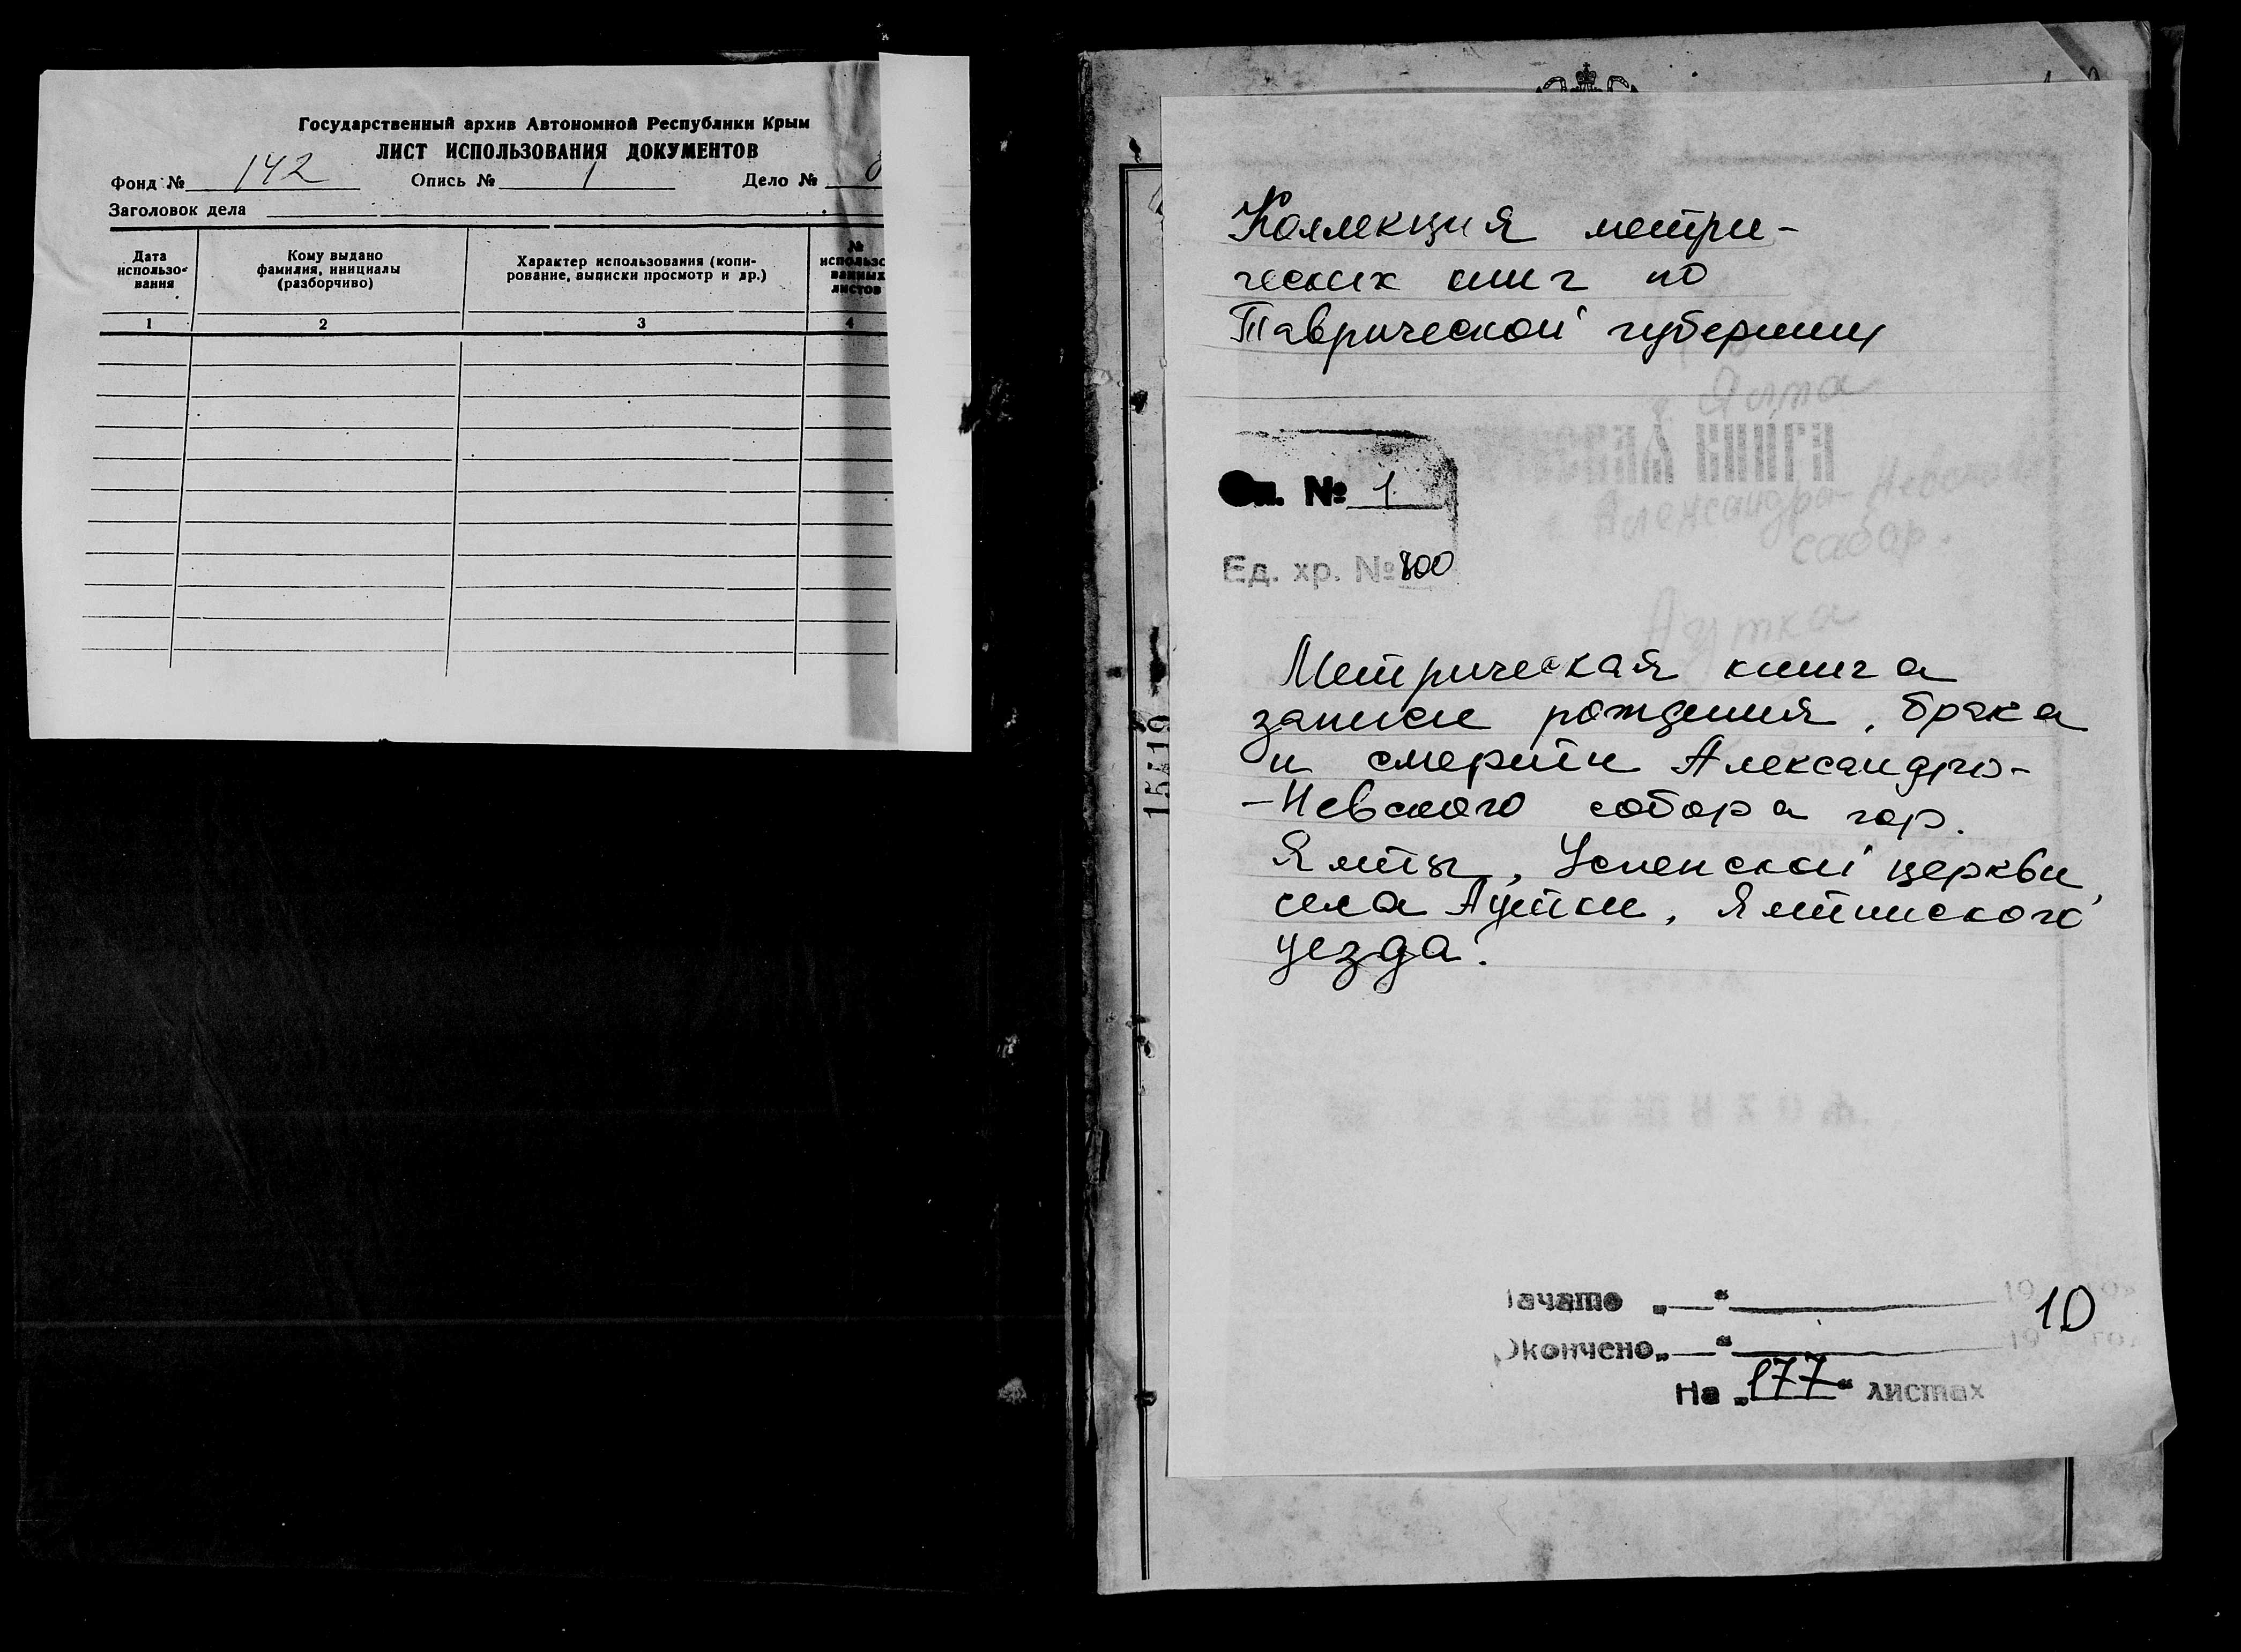 Государственный архив Автономной Республики Крым
ЛИСТ ИСПОЛЬЗОВАНИЯ ДОКУМЕНТОВ
Фонд № 142 Опись № 1 Дело №
Заголовок дела
Дата использо-вания
Кому выдано фамилия, инициалы (разборчиво)
Характер использования (копи-рование, выписки просмотр и др.)
№ использо ванных листов
1 2 3 4
Коллекция метри-
ческих книг по
Таврической губернии
г. Ялта
КНИГА
Александро-Невский
собор.
Оп. № 1
Ед. хр. № 800
Аутка
Метрическая книга
записи рождения, брака
и смерти Александро-
-Невского собора гор.
Ялты, Успенской церкви,
села Аутки, Ялтинского
уезда.
15519
Начато „ “ 10
Окончено „ “
На „177“ листах